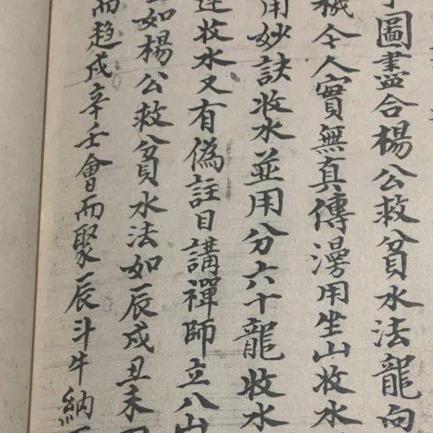 圖盡合楊公救貧水法龍向
秘今人實無真傳漫用坐山收水
用妙訣收水並用分六十龍收水
收水又有偽註目講禪師立八山
如楊公救貧水法如辰戌丑未
而趨戌辛壬會而聚辰斗牛納